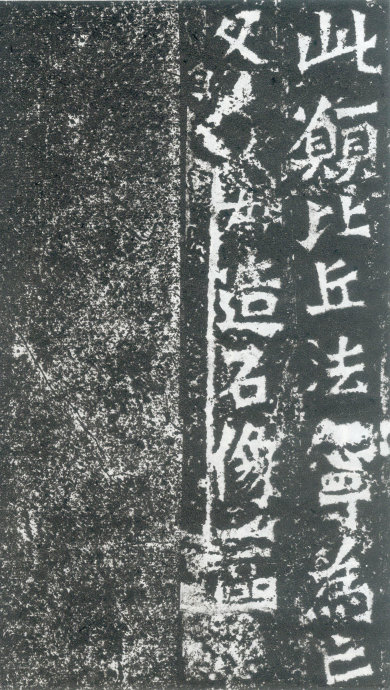 此願比丘法尊為亡
父母造石像一區